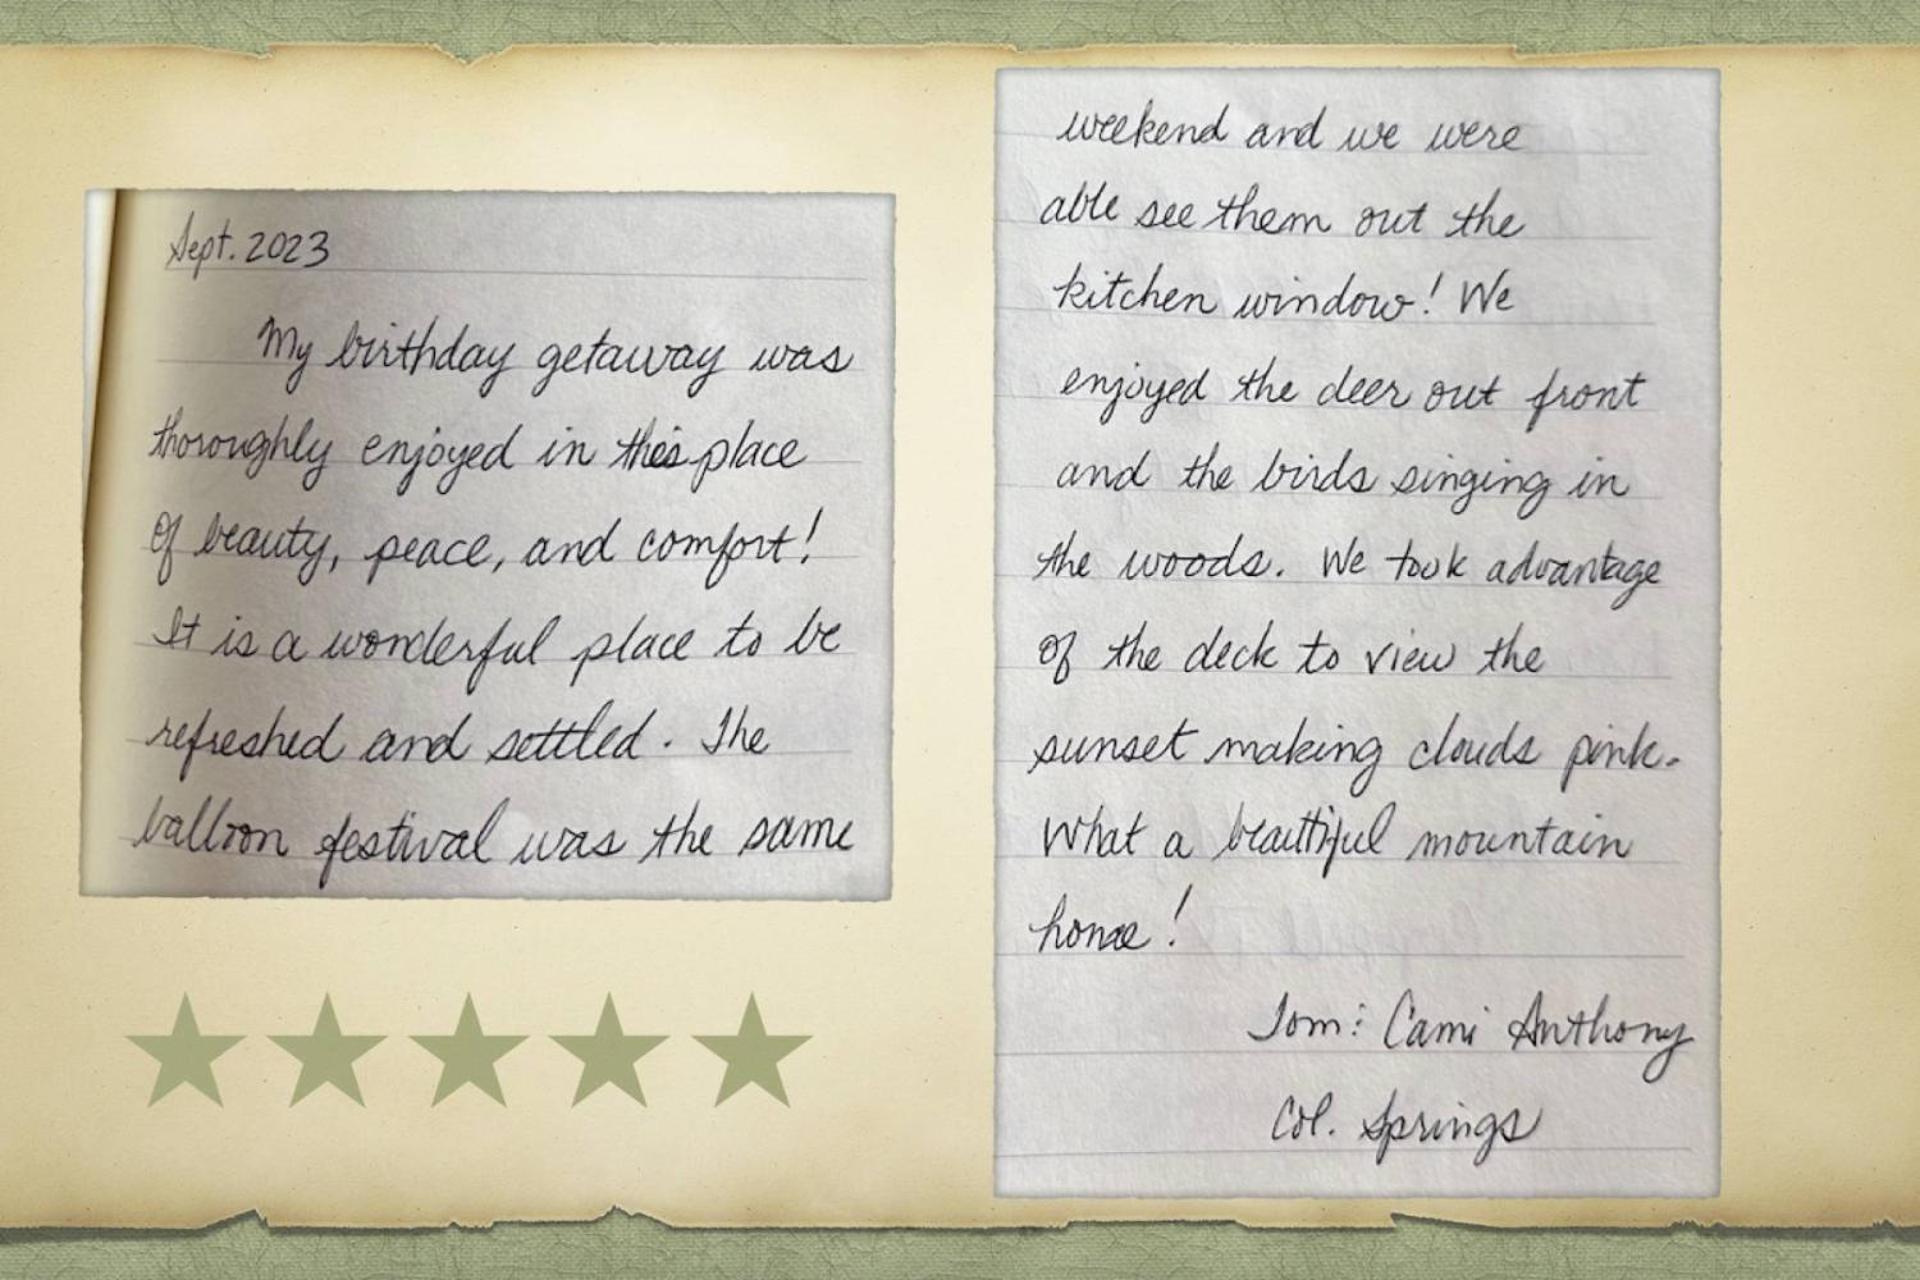 Sept. 2023
My birthday getaway was
thoroughly enjoyed in this place
of beauty, peace, and comfort!
It is a wonderful place to be
refreshed and settled. The
balloon festival was the same
weekend and we were
able see them out the
kitchen window! We
enjoyed the deer out front
and the birds singing in
the woods. We took advantage
of the deck to view the
sunset making clouds pink.
What a beautiful mountain
home!
Tom & Cami Anthony
Col. Springs